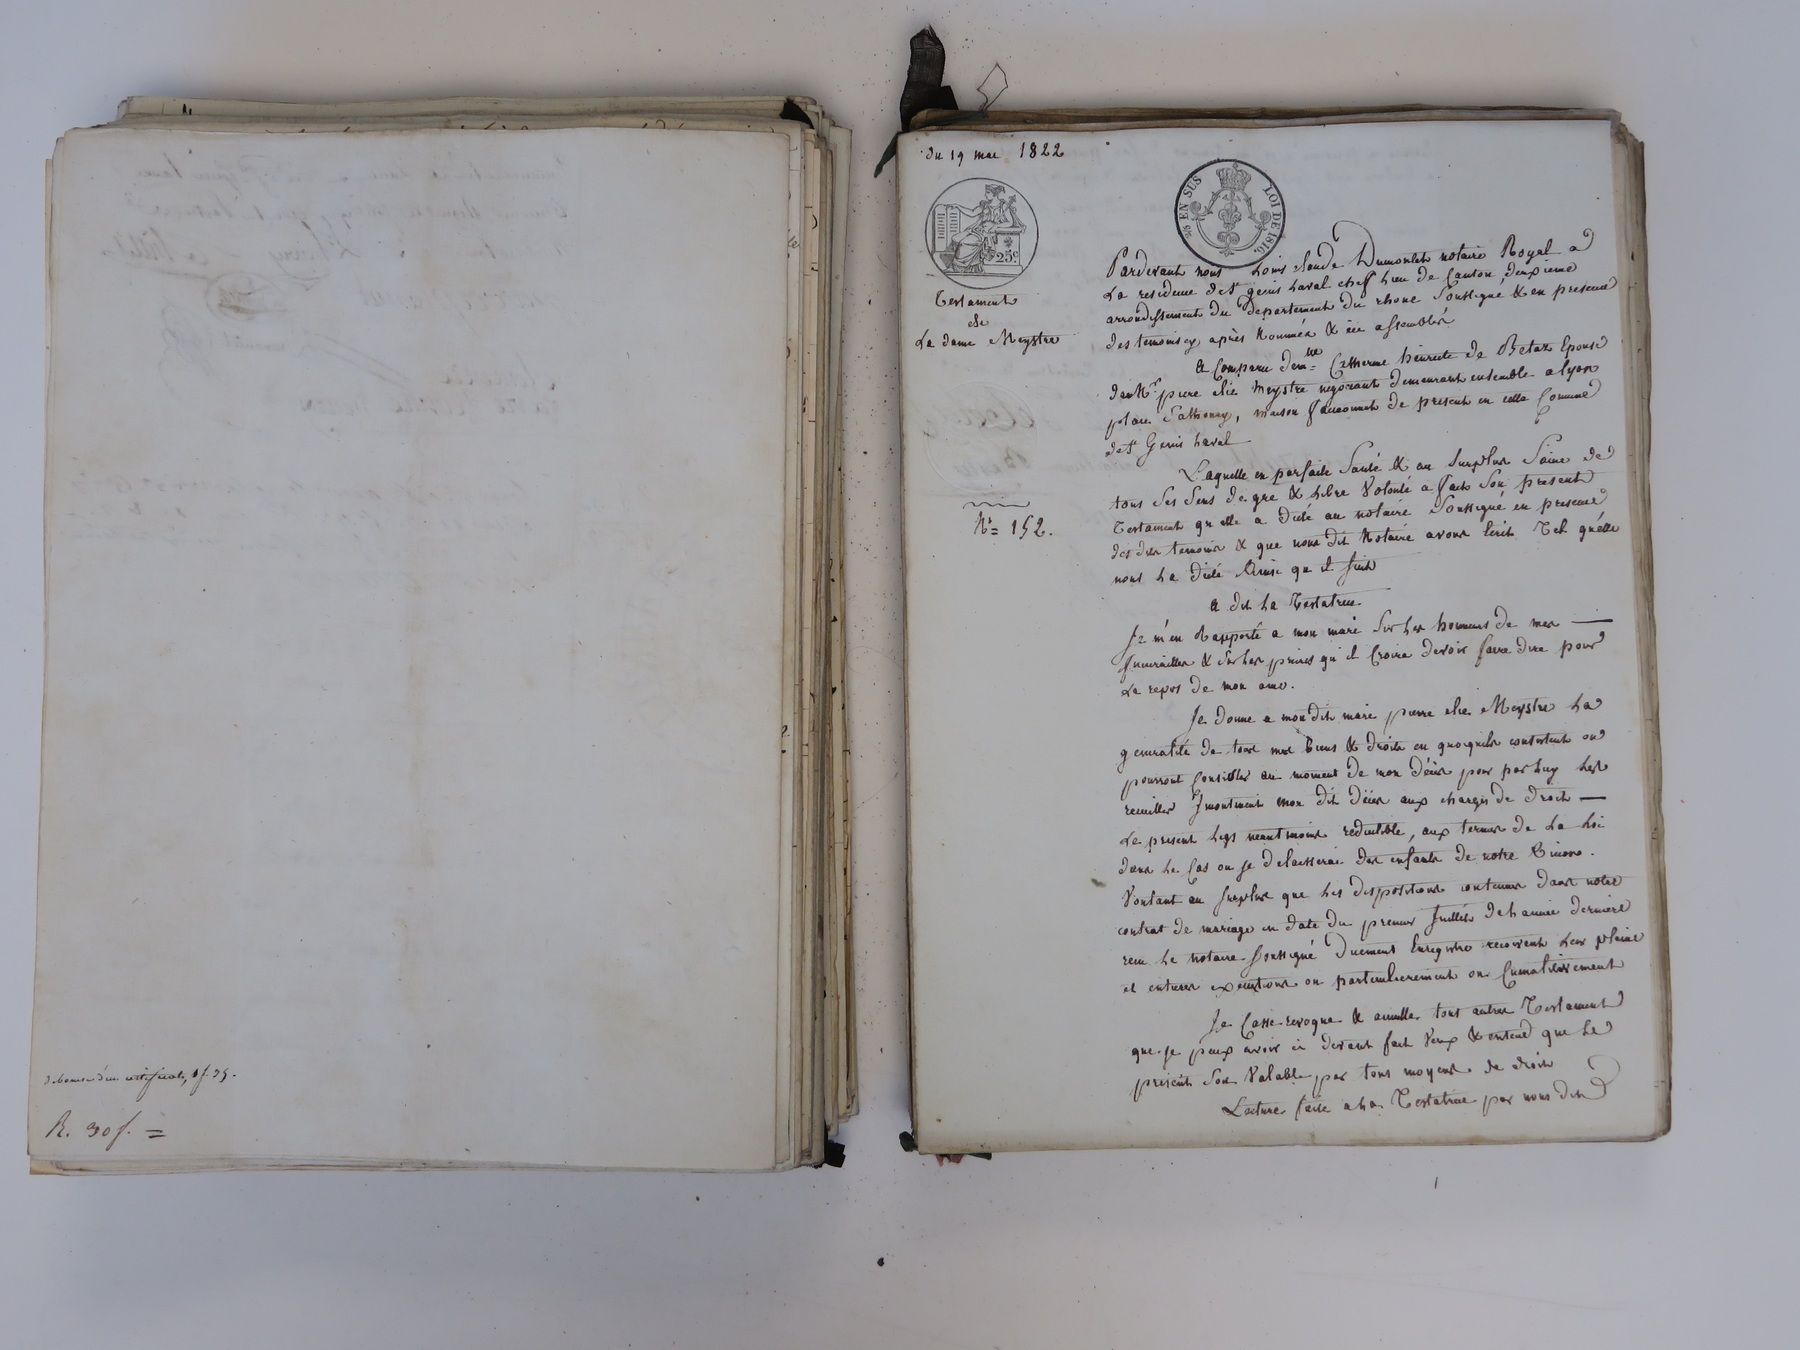 debourse d'un certificat, 1f. 75.
R. 30 f. =
du 19 mai 1822
25 EN SUS LOI DE 1816.
25c
Testament
de
La dame Meystre
No = 152.
Pardevant nous Louis claude Dumortier notaire Royal a
La residence de St genis Laval chef Lieu de Canton deuxieme
arrondissement du departement du rhone Soussigné & en presence
des temoins cy après Nommés & icy assemblés
A Comparu dem.lle Catherine henriette de Betaz Epouse
de Mr pierre elie Meystre negociant demeurant ensemble a lyon
place Sathonay, maison de present en cette Comune
de St Genis Laval
Laquelle en parfaite Santé & au Surplus Saine de
tous Ses Sens de gre & Libre Volonté a fait Son present
Testament qu'elle a dicté au notaire Soussigné en presence
des dits temoins & que nous dit Notaire avons Ecrit Tel qu'elle
nous La dicté Ainsi qu il Suit
A dit La Testatrice
Je m'en Rapporte a mon mari Sur Les honneurs de mes —
funerailles & Sur Les prieres qu'il Croira devoir faire dire pour
Le repos de mon ame.
Je donne a mon dit mari pierre elie Meystre La
generalité de tous mes biens & droits en quoiqu'ils consistent ou
pourront Consister au moment de mon décès pour par Luy Les
recuillir Jmontinent mon dit décès aux charges de droit —
Le present Legs neantmoins reductible, aux termes de La Loi
dans Le Cas ou je delaisserai des enfants de notre Union.
Voulant au Surplus que Les dispositions contenues dans notre
contrat de mariage en date du premier Juillet de L année derniere
recu Le notaire Soussigné Duement Enregistre recoivent Leur pleine
et entiere executions ou particulierement ou Cumulativement
Je Casse revoque & annulle tous autres Testament
que je peux avoir ci devant fait Veux & entend que Le
present Soit Valable par tous moyens de droit
Lecture faite a La Testatrice par nous dit